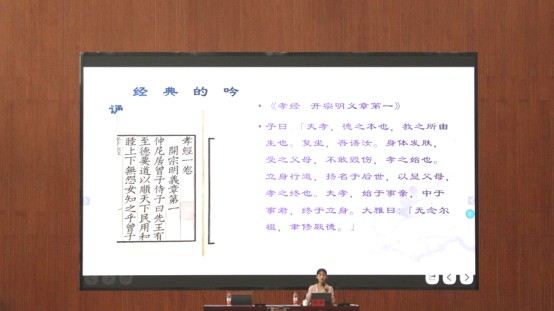 经 典 的 吟
诵
孝經一卷
開宗明義章第一
仲尼居曾子侍子曰先王有
至德要道以順天下民用和
睦上下無怨女知之乎曾子
• 《孝经 开宗明义章第一》
• 子曰：「夫孝，德之本也，教之所由
生也。复坐，吾语汝。身体发肤，
受之父母，不敢毁伤，孝之始也。
立身行道，扬名于后世，以显父母，
孝之终也。夫孝，始于事亲，中于
事君，终于立身。大雅曰：「无念尔
祖，聿修厥德。」